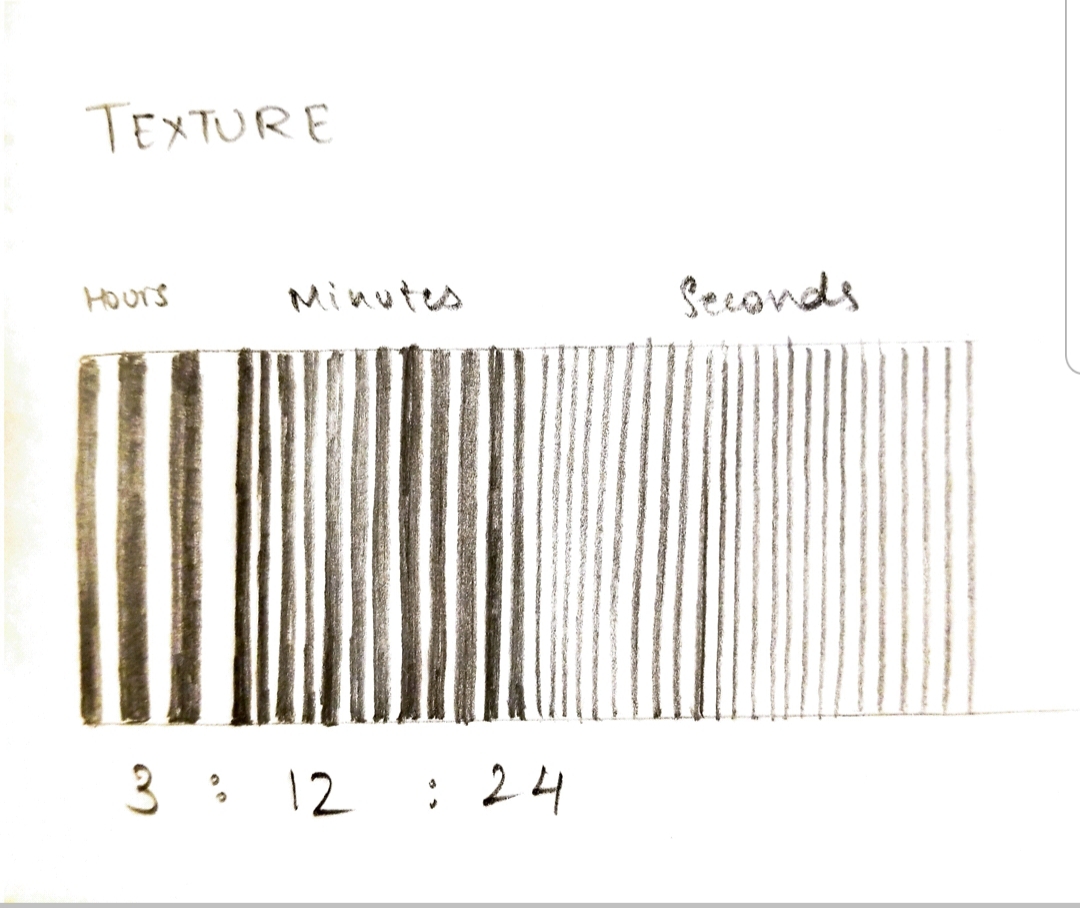 TEXTURE
Hours Minutes Seconds
3 : 12 : 24